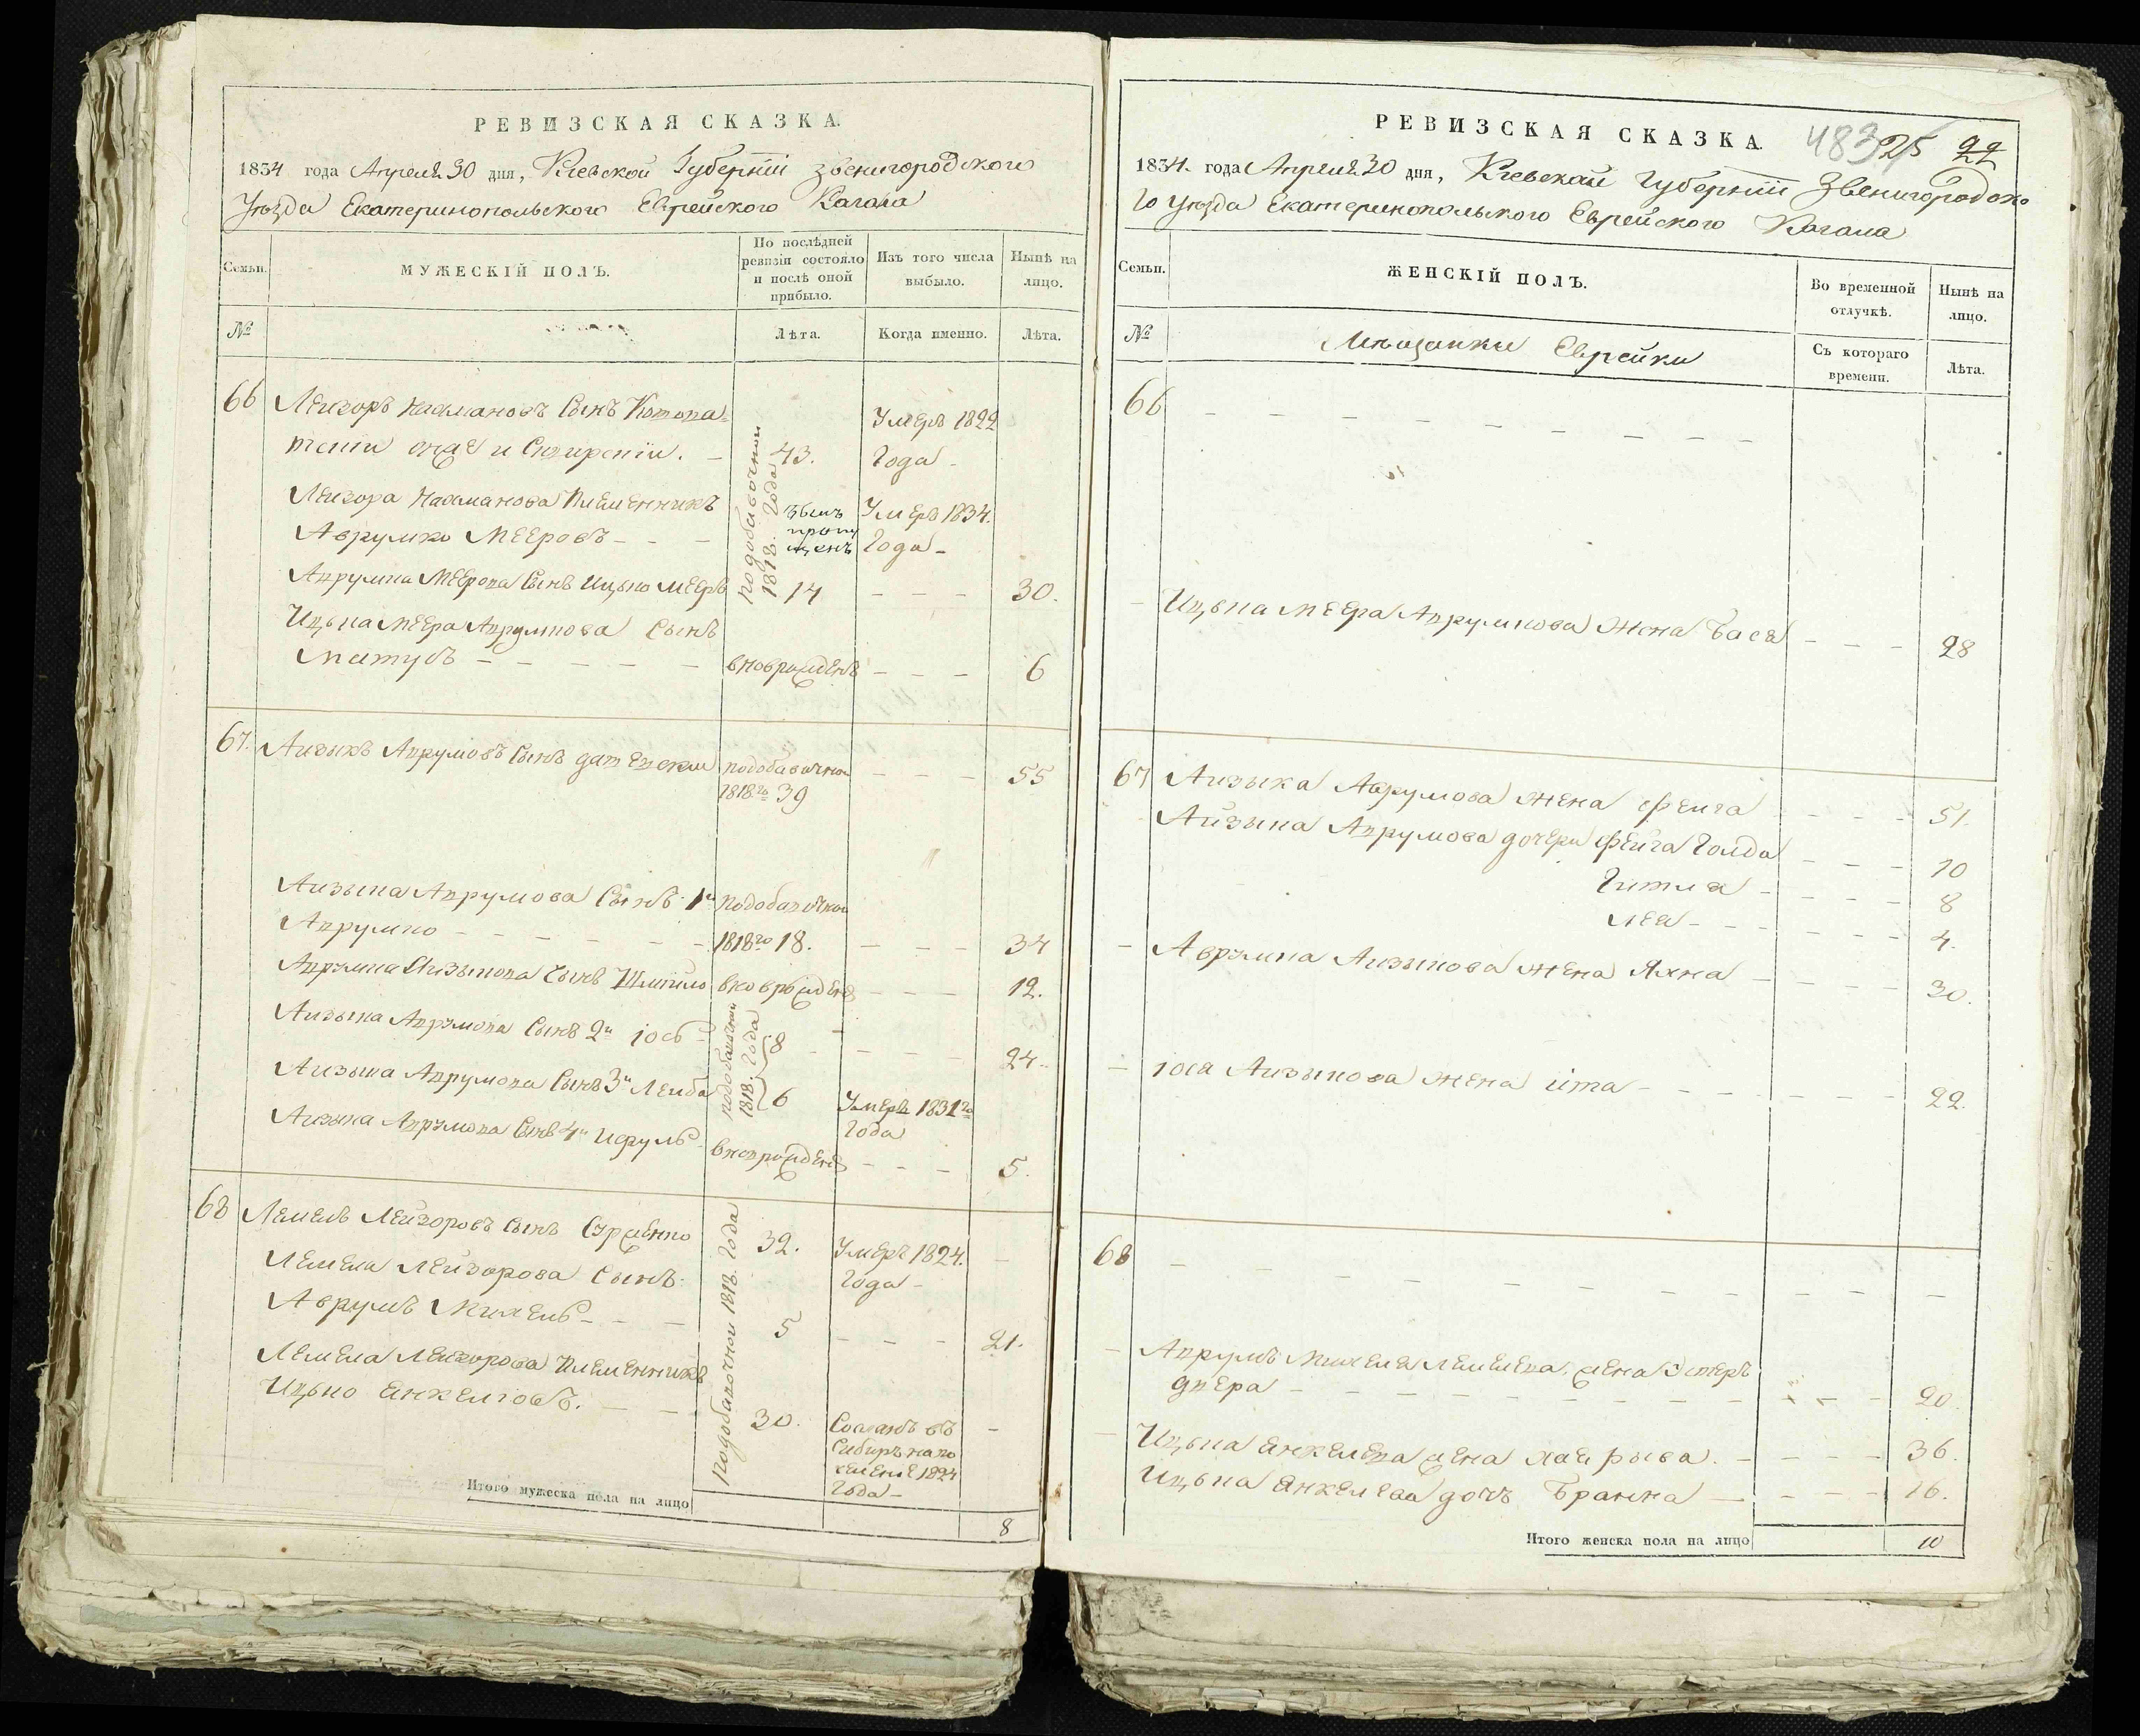 РЕВИЗСКАЯ СКАЗКА.
1834 года Апреля 30 дня, Киевской Губерніи Звенигородского
Уѣзда Екатеринопольского Еврейского Кагала
Семьи.
МУЖЕСКІЙ ПОЛЪ.
По послѣдней ревизіи состояло и послѣ оной прибыло.
Изъ того числа выбыло.
Нынѣ на лицо.
№
Лѣта.
Когда именно.
Лѣта.
66 Лейзоръ Нахмановъ Сынъ Умеръ 1822
43. Года
Лейзора Нахманова Племенникъ
по добавочной 1818. Года
Аврумко Мееровъ
збылъ пропущенъ
Умеръ 1834. Года
Аврумка Меерова Сынъ Ицько Мееръ 14 30.
Ицька Меера Аврумкова Сынъ
Матусъ вноврожденъ 6
67. Айзыкъ Аврумовъ Сынъ по добавочной 55
1818го 39
Айзыка Аврумова Сынъ 1й по добавочной
Аврумко 1818го 18. 34
Аврумка Айзыкова Сынъ Шмуйло вноврожденъ 12.
Айзыка Аврумова Сынъ 2й Іосъ 8 24.
по добавочной 1818. Года
Айзыка Аврумова Сынъ 3й Лейба 6 Умеръ 1831го Года
Айзыка Аврумова Сынъ 4й Исруль вноврожденъ 5.
68 Лемель Лейзоровъ Сынъ 32. Умеръ 1824. Года
по добавочной 1818. Года
Лемеля Лейзорова Сынъ
Аврумъ Михель 5 21.
Лемеля Лейзорова Племенникъ
Ицько Янкелiовъ. 30. Сосланъ въ
Сибирь на по
селеніе 1824
Года
Итого мужеска пола на лицо 8
РЕВИЗСКАЯ СКАЗКА.
483 25 22
1834. года Апреля 30 дня, Киевской Губерніи Звенигородско
го Уѣзда Екатеринопольского Еврейского Кагала
Семьи.
ЖЕНСКІЙ ПОЛЪ.
Во временной отлучкѣ.
Нынѣ на лицо.
№
Мѣщанки Еврейки
Съ котораго времени.
Лѣта.
66
Ицька Меера Аврумкова Жена Бася 28
67 Айзыка Аврумова Жена Фейга 51.
Айзыка Аврумова дочери Фейга Голда 10
Гитля 8
Лея 4.
Аврумка Айзыкова Жена Яхна 30.
Іося Айзыкова Жена Ита 22.
68
Аврумъ Михеля Лемелева жена Эстеръ
двера 20.
Ицька Янкелева жена Хая рыва. 36.
Ицька Янкелева дочь Бранна 16.
Итого женска пола на лицо 10